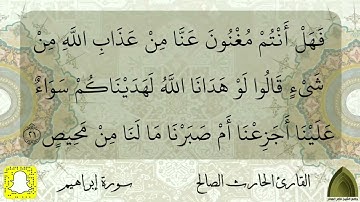 فَهَلْ أَنْتُمْ مُغْنُونَ عَنَّا مِنْ عَذَابِ اللَّهِ مِنْ
شَيْءٍ قَالُوا لَوْ هَدَانَا اللَّهُ لَهَدَيْنَاكُمْ سَوَاءٌ
عَلَيْنَا أَجَزِعْنَا أَمْ صَبَرْنَا مَا لَنَا مِنْ مَحِيصٍ ﴿٢١﴾
القارئ الحارث الصالح
سورة إبراهيم